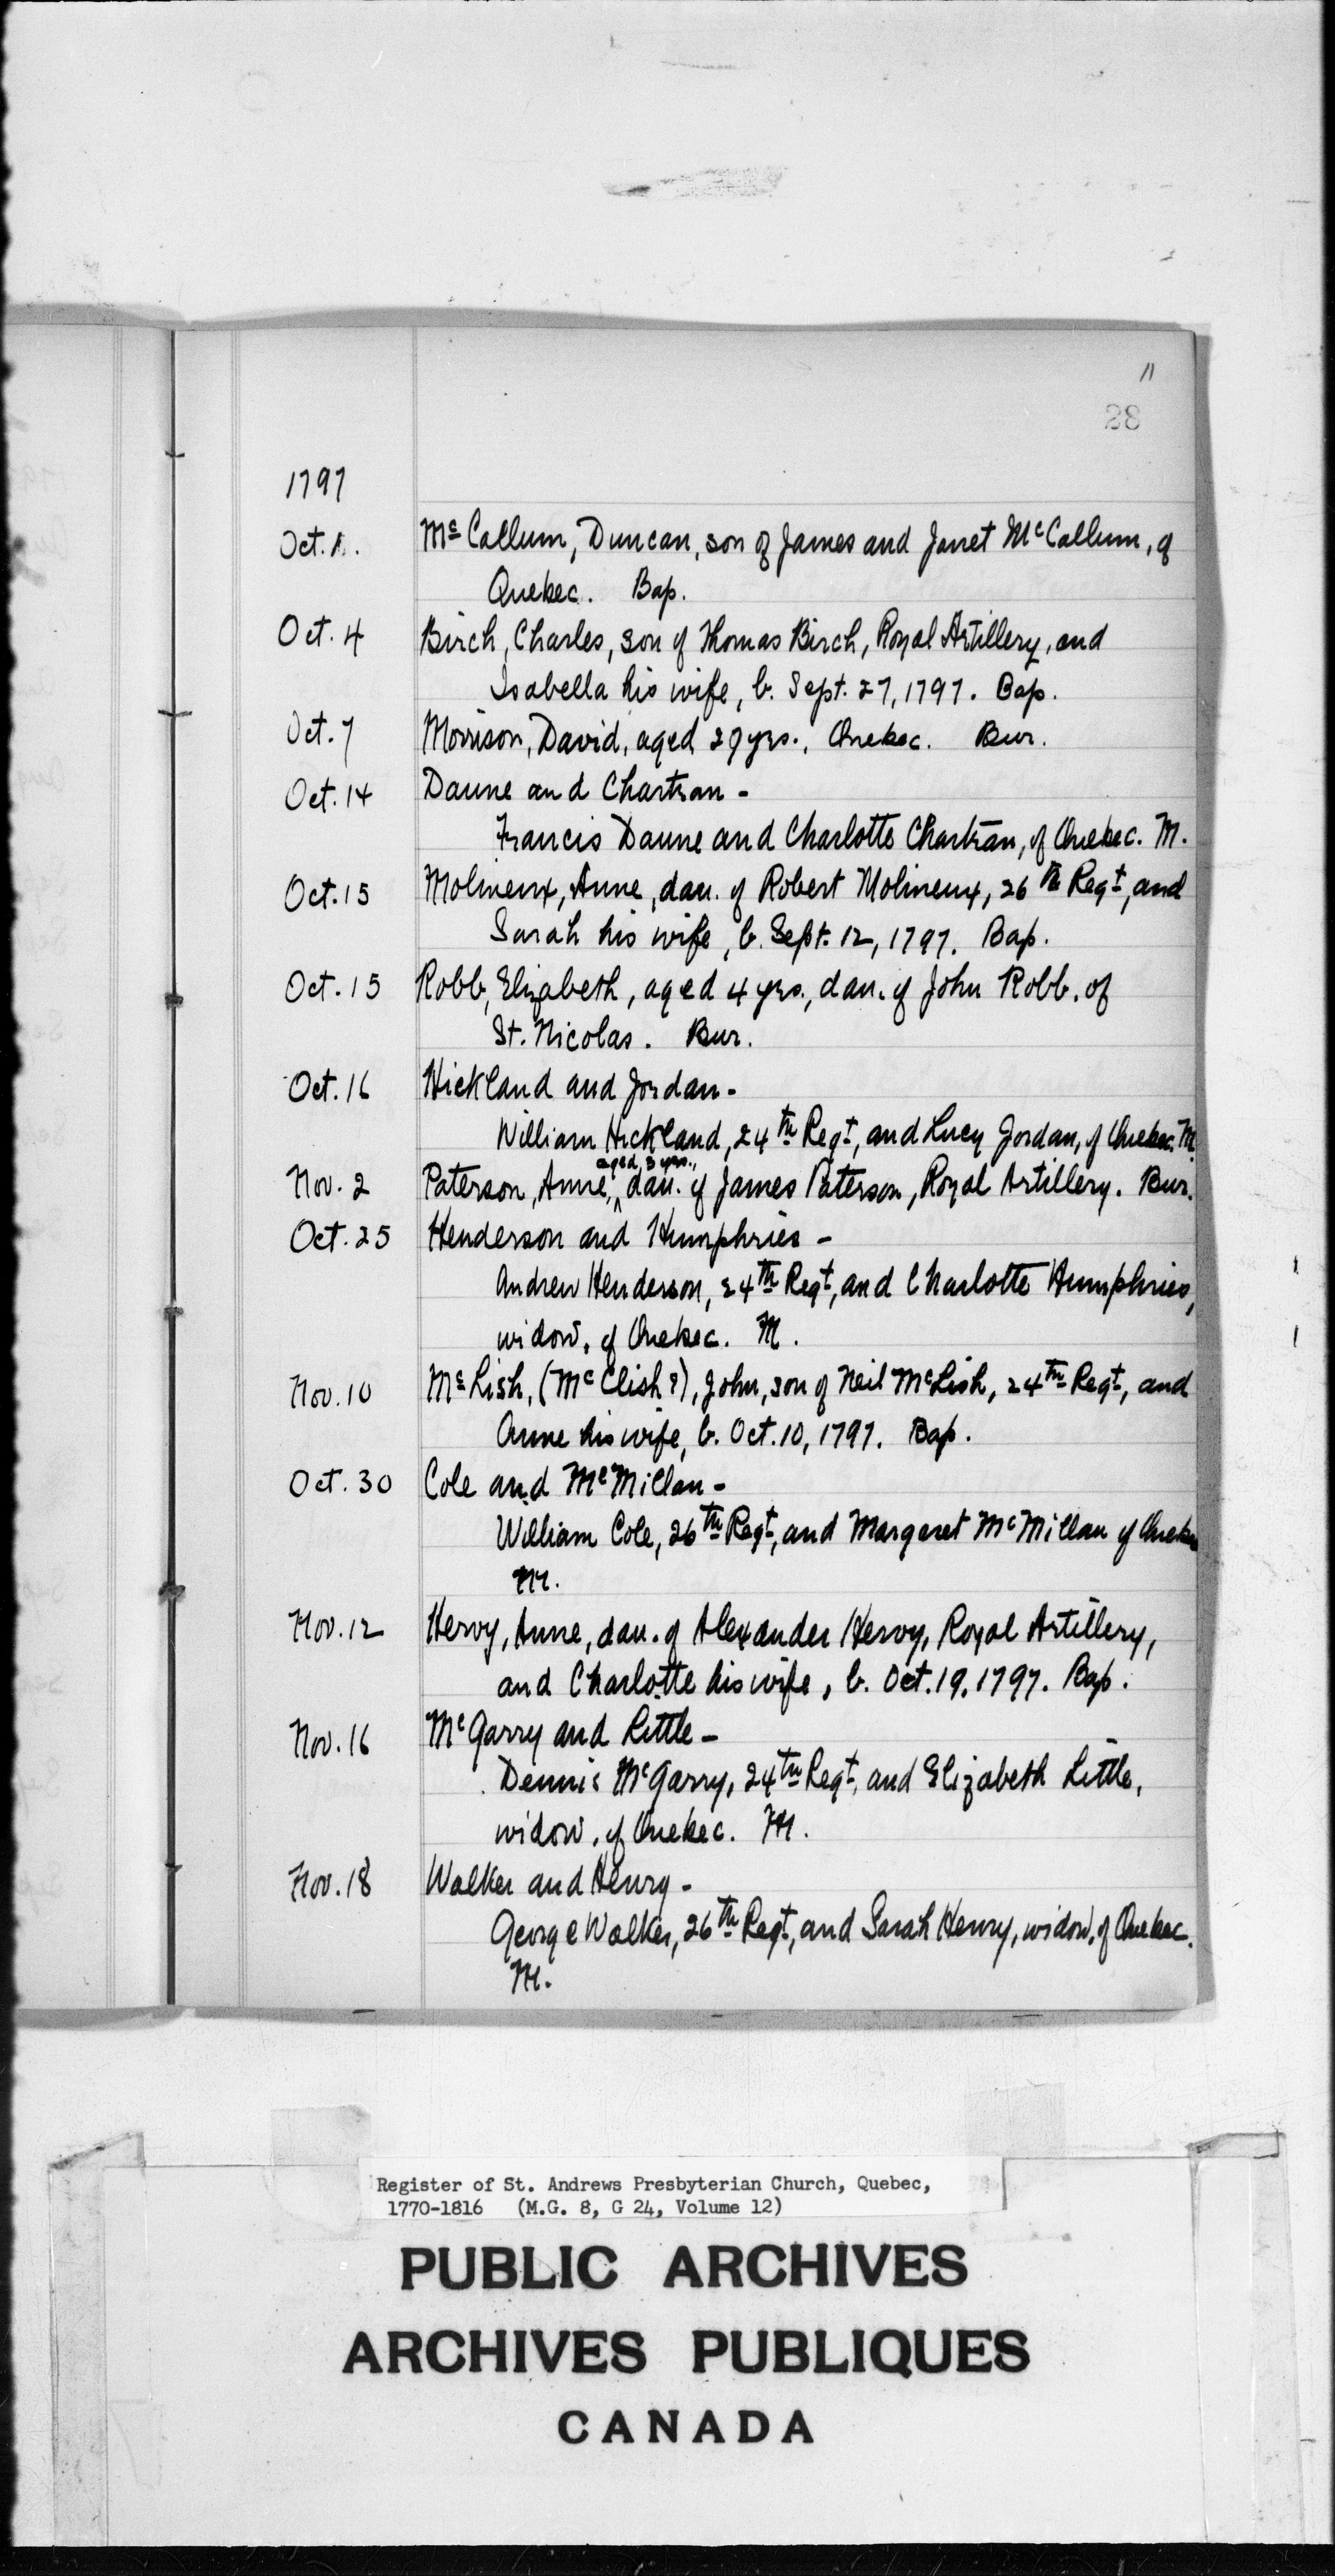 11
28
1797
Oct. 1. McCallum, Duncan, son of James and Janet McCallum, of
Quebec. Bap.
Oct. 4 Birch, Charles, son of Thomas Birch, Royal Artillery, and
Isabella his wife, b. Sept. 27, 1797. Bap.
Oct. 7 Morrison, David, aged 29 yrs., Quebec. Bur.
Oct. 14 Daune and Chartran -
Francis Daune and Charlotte Chartran, of Quebec. M.
Oct. 15 Molineux, Anne, dau. of Robert Molineux, 26th Regt, and
Sarah his wife, b. Sept. 12, 1797. Bap.
Oct. 15 Robb, Elizabeth, aged 4 yrs., dau. of John Robb, of
St. Nicolas. Bur.
Oct. 16 Hickland and Jordan -
William Hickland, 24th Regt, and Lucy Jordan, of Quebec. M.
aged 3 yrs.,
Nov. 2 Paterson, Anne, ^ dau. of James Paterson, Royal Artillery. Bur.
Oct. 25 Henderson and Humphries -
Andrew Henderson, 24th Regt, and Charlotte Humphries,
widow, of Quebec. M.
Nov. 10 McLish, (McClish?), John, son of Neil McLish, 24th Regt, and
Anne his wife, b. Oct. 10, 1797. Bap.
Oct. 30 Cole and McMillan -
William Cole, 26th Regt, and Margaret McMillan of Quebec
M.
Nov. 12 Hervy, Anne, dau. of Alexander Hervy, Royal Artillery,
and Charlotte his wife, b. Oct. 19, 1797. Bap.
Nov. 16 McGarry and Little -
Dennis McGarry, 24th Regt, and Elizabeth Little,
widow, of Quebec. M.
Nov. 18 Walker and Henry -
George Walker, 26th Regt, and Sarah Henry, widow, of Quebec.
M.
Register of St. Andrews Presbyterian Church, Quebec,
1770-1816 (M.G. 8, G 24, Volume 12)
PUBLIC ARCHIVES
ARCHIVES PUBLIQUES
CANADA